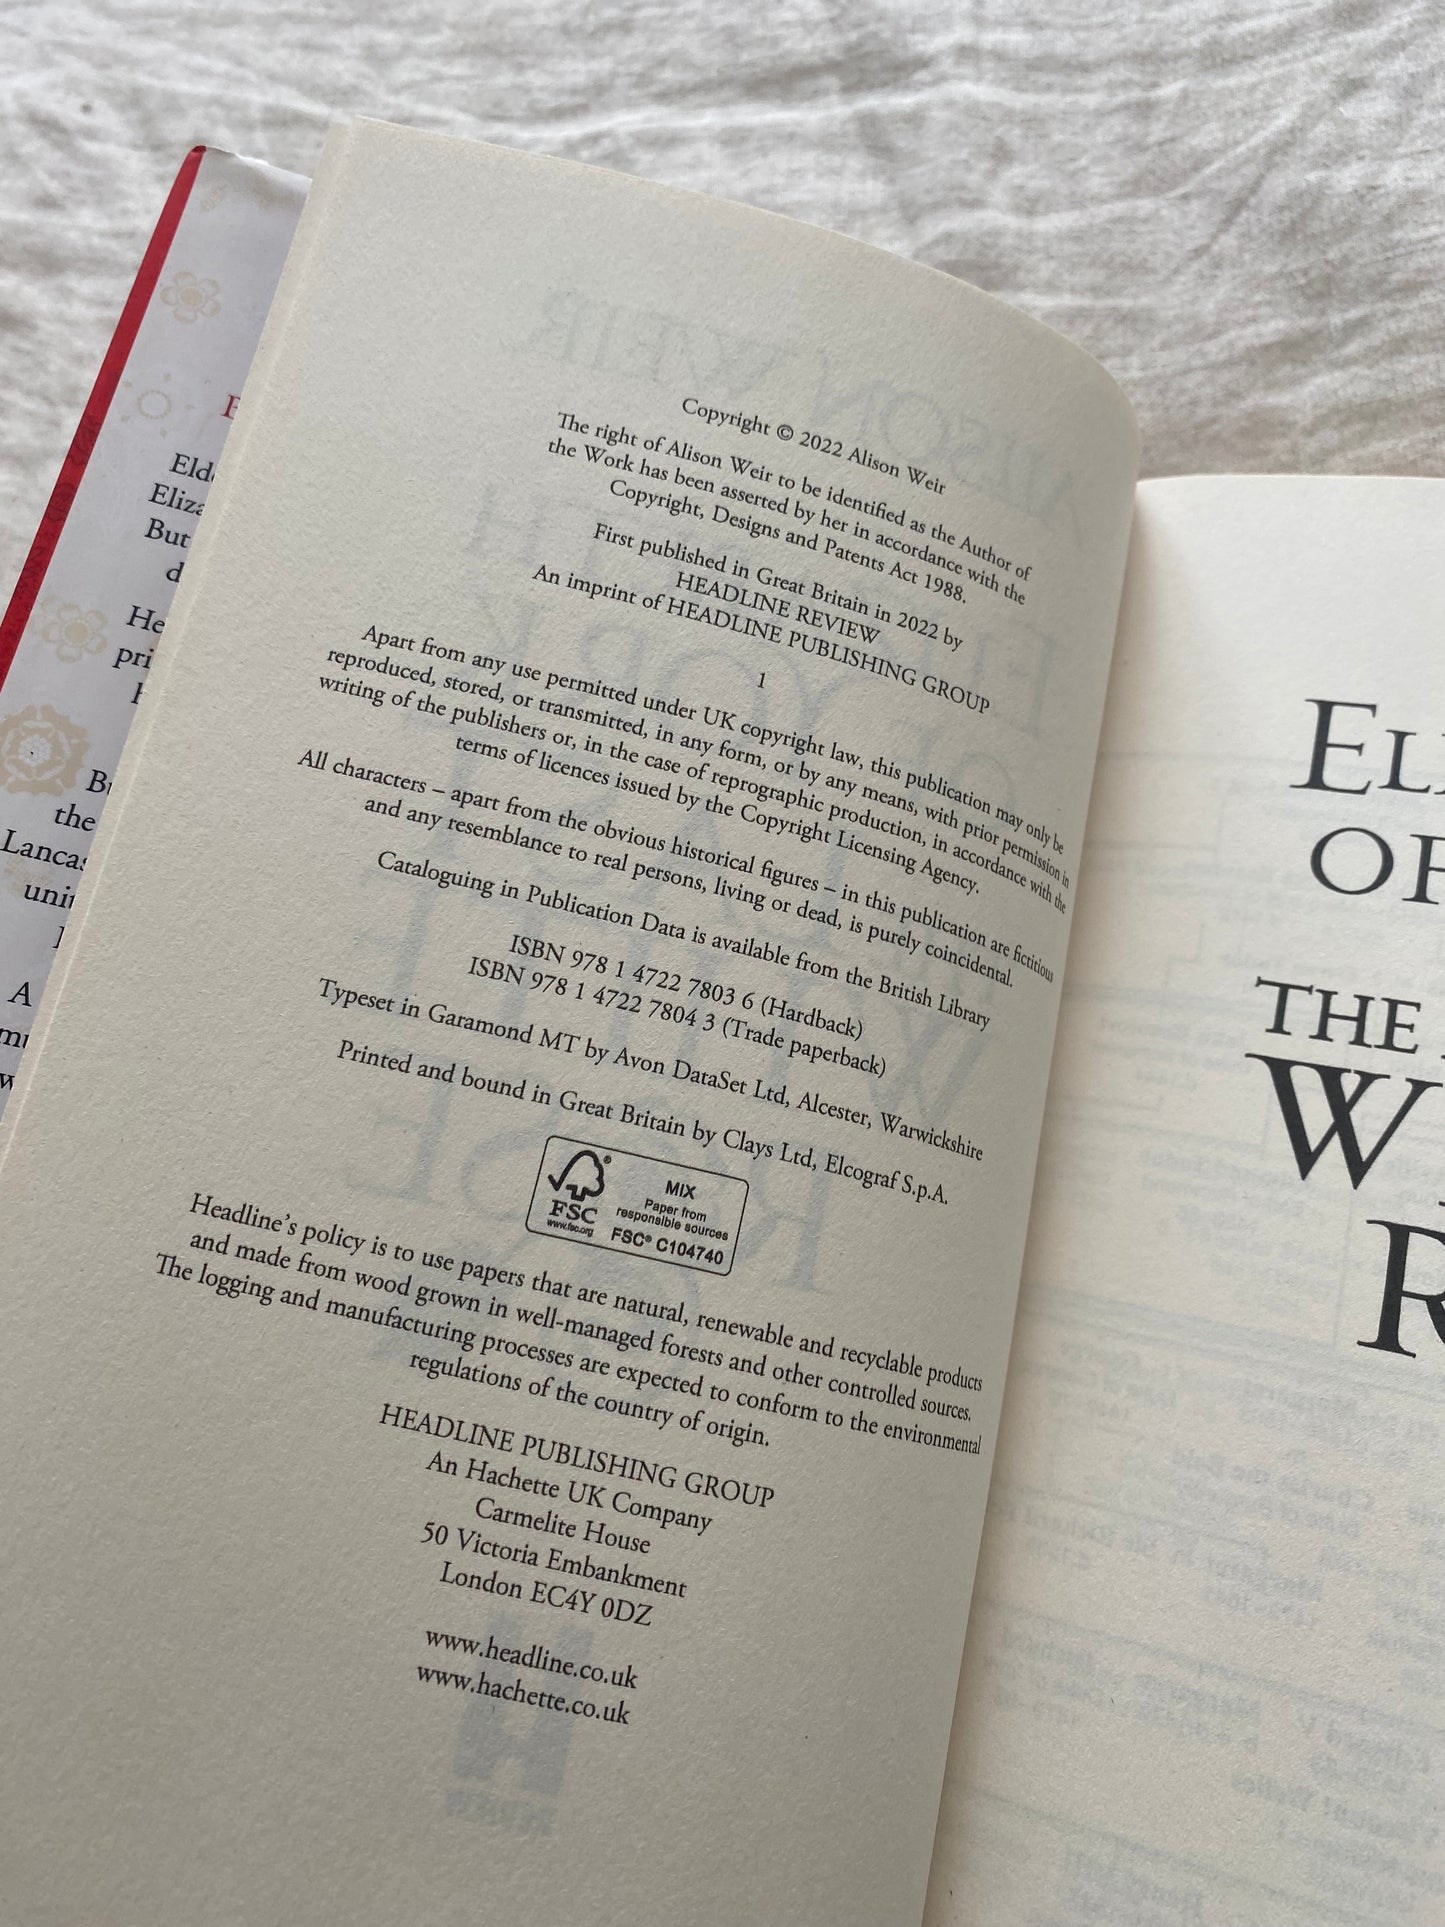 Copyright © 2022 Alison Weir
The right of Alison Weir to be identified as the Author of
the Work has been asserted by her in accordance with the
Copyright, Designs and Patents Act 1988.
First published in Great Britain in 2022 by
HEADLINE REVIEW
An imprint of HEADLINE PUBLISHING GROUP
1
Apart from any use permitted under UK copyright law, this publication may only be
reproduced, stored, or transmitted, in any form, or by any means, with prior permission in
writing of the publishers or, in the case of reprographic production, in accordance with the
terms of licences issued by the Copyright Licensing Agency.
All characters – apart from the obvious historical figures – in this publication are fictitious
and any resemblance to real persons, living or dead, is purely coincidental.
Cataloguing in Publication Data is available from the British Library
ISBN 978 1 4722 7803 6 (Hardback)
ISBN 978 1 4722 7804 3 (Trade paperback)
Typeset in Garamond MT by Avon DataSet Ltd, Alcester, Warwickshire
Printed and bound in Great Britain by Clays Ltd, Elcograf S.p.A.
FSC
www.fsc.org
MIX
Paper from
responsible sources
FSC® C104740
Headline's policy is to use papers that are natural, renewable and recyclable products
and made from wood grown in well-managed forests and other controlled sources.
The logging and manufacturing processes are expected to conform to the environmental
regulations of the country of origin.
HEADLINE PUBLISHING GROUP
An Hachette UK Company
Carmelite House
50 Victoria Embankment
London EC4Y 0DZ
www.headline.co.uk
www.hachette.co.uk
But
the
THE